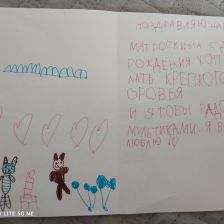 ПОЗДРАВЛЯЮ
МАТРОСКИНА С Д
РОЖДЕНИЯ ХОЧ
ЛАТЬ КРЕПКОГО
ОРОВЬЯ
И ЯТОБЫ РАДО
МУЛЬТИКАМИ. Я В
ЛЮБЛЮ
LITE 5G NE